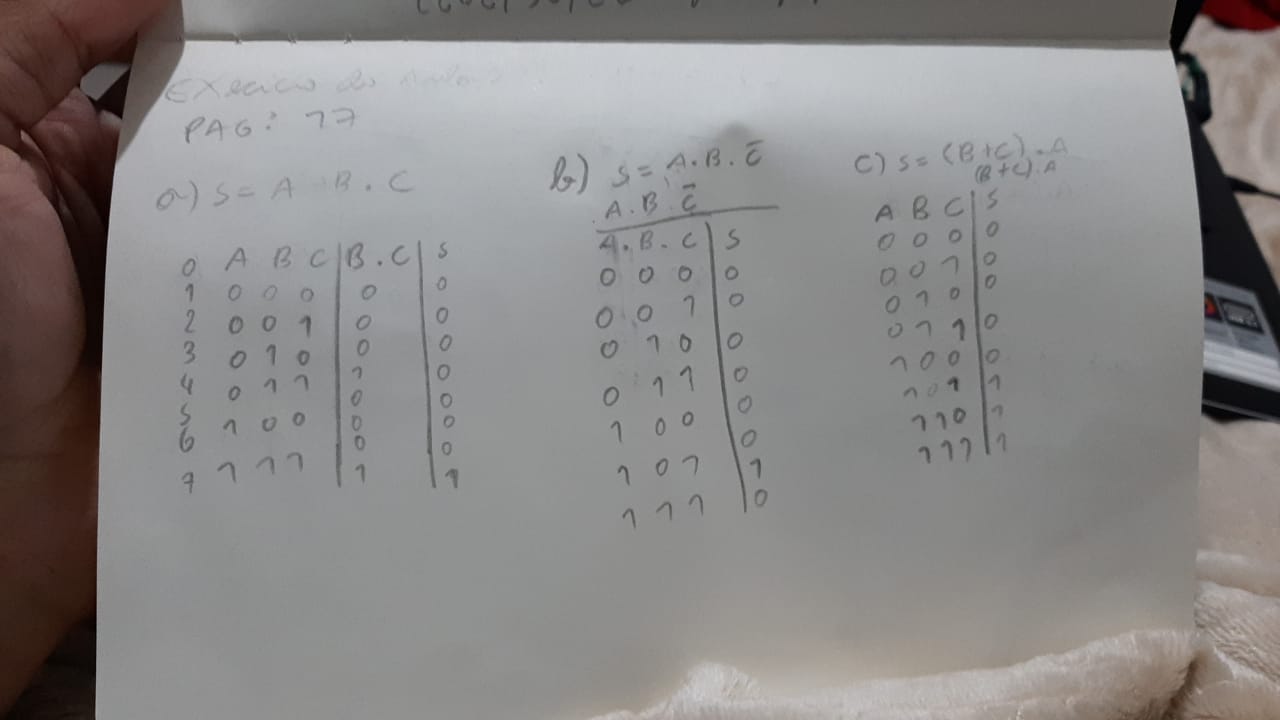 PAG: 17
a) S = A B . C
0 A B C B . C S
1 0 0 0 0 0
2 0 0 1 0 0
3 0 1 0 0 0
4 0 1 1 1 0
5 1 0 0 0 0
6 0 0
7 1 1 1 1 1
b) S = A . B . C̄
A . B . C̄
A . B . C S
0 0 0 0
0 0 1 0
0 1 0 0
0 1 1 0
1 0 0 0
0
1 0 1 1
1 1 1 0
c) S = (B + C) . A
(B + C) . A
A B C S
0 0 0 0
0 0 1 0
0 1 0 0
0 1 1 0
1 0 0 0
1 0 1 1
1 1 0 1
1 1 1 1